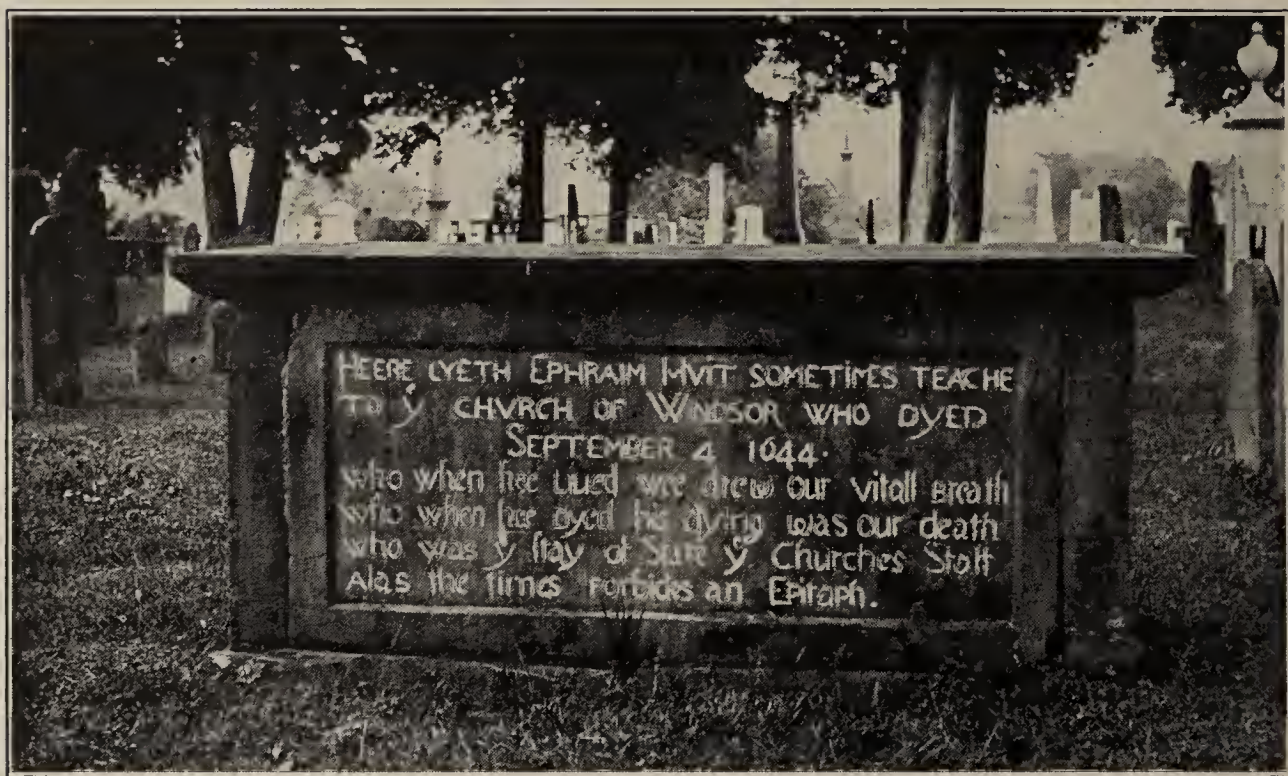 HEERE LYETH EPHRAIM HVIT SOMETIMES TEACHE
TO Ẏ CHVRCH OF WINDSOR WHO DYED
SEPTEMBER 4 1644.
who when hee liued wee drew our vitall Breath
who when hee dyed his dying was our death
who was ẏ stay of State ẏ Churches Staff
Alas the times Forbids an Epitaph.